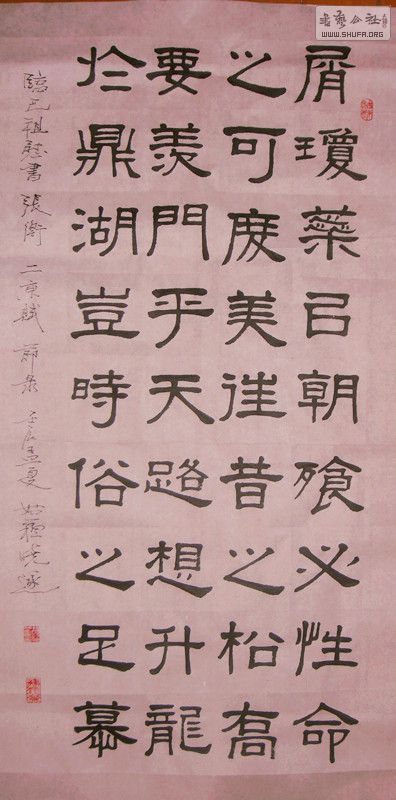 書藝公社
WWW.SHUFA.ORG
屑瓊蘂㠯朝飱必性命
之可度美往昔之松喬
要羨門乎天路想升龍
於鼎湖豈時俗之足慕
臨巴祖慰書張衡二京賦 節录 壬辰孟夏